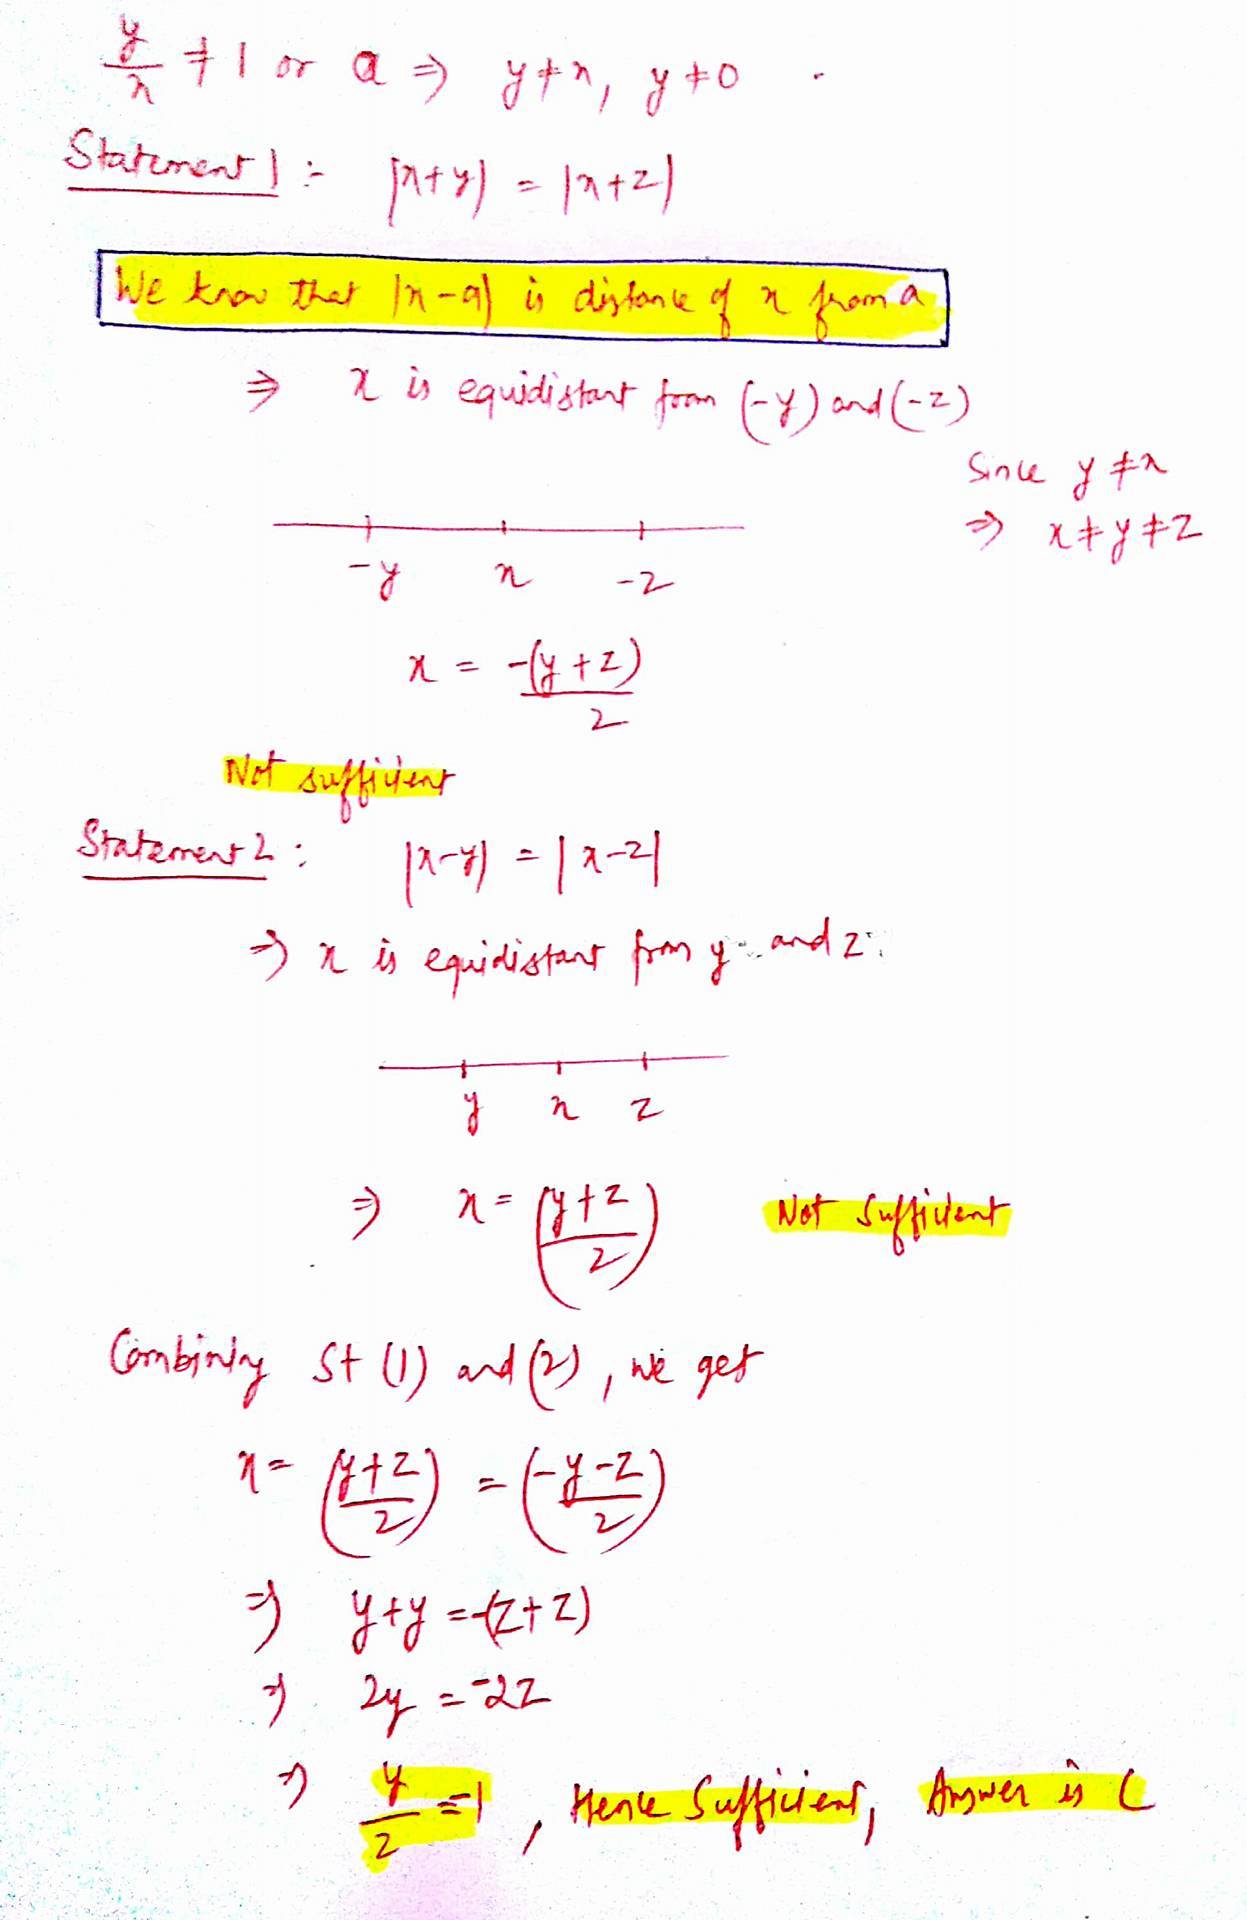 y/x ≠ 1 or a ⇒ y≠x, y≠0
Statement 1 :- |x+y| = |x+z|
We know that |x-a| is distance of x from a
⇒ x is equidistant from (-y) and (-z)
Since y≠x
⇒ x≠y≠z
-y x -z
x = -(y+z)/2
Not sufficient
Statement 2 : |x-y| = |x-z|
⇒ x is equidistant from y and z
y x z
⇒ x = (y+z/2) Not sufficient
Combining St (1) and (2), we get
x = (y+z/2) = (-y-z/2)
⇒ y+y = -(z+z)
⇒ 2y = -2z
⇒ y/z = -1, Hence Sufficient, Answer is C